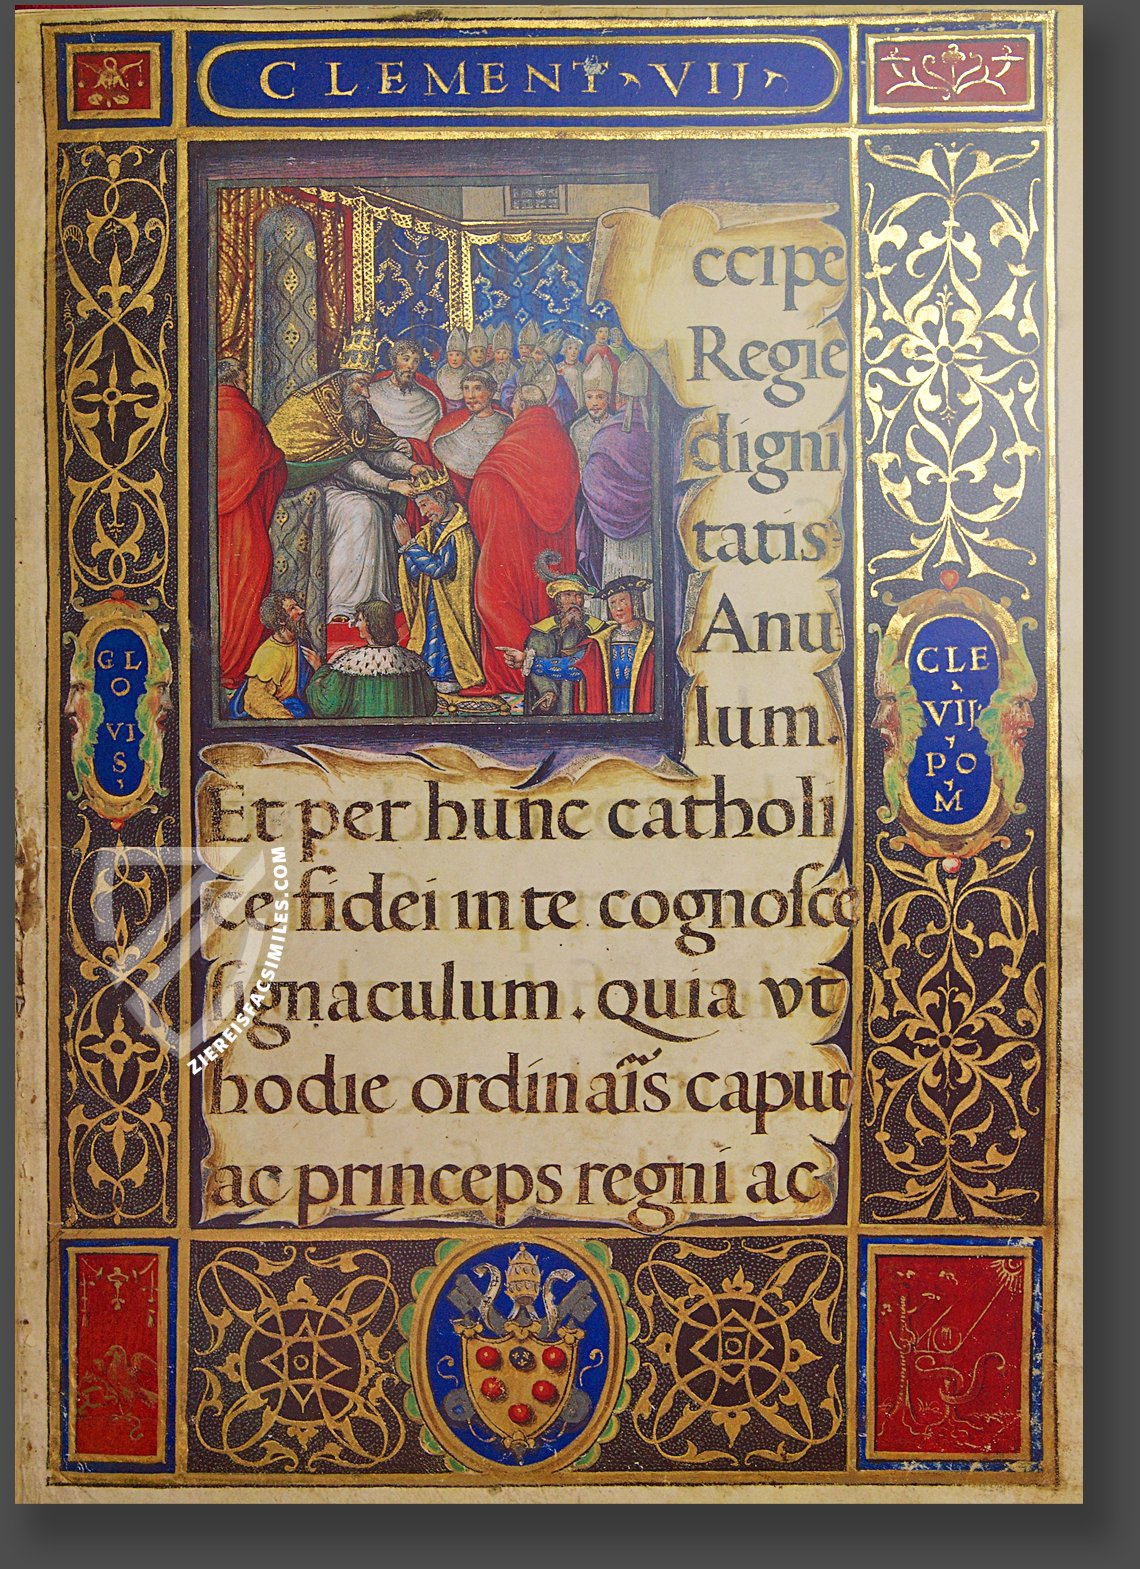 CLEMENT, VIJ,
ccipe
Regie
digni
tatis
Anu
lum.
Et per hunc catholi
ce fidei in te cognosce
signaculum. quia vt
hodie ordinaris caput
ac princeps regni ac
GL
O
VI
S,
CLE
,
VIJ,
,
PO
,
M
ZIEREISFACSIMILES.COM